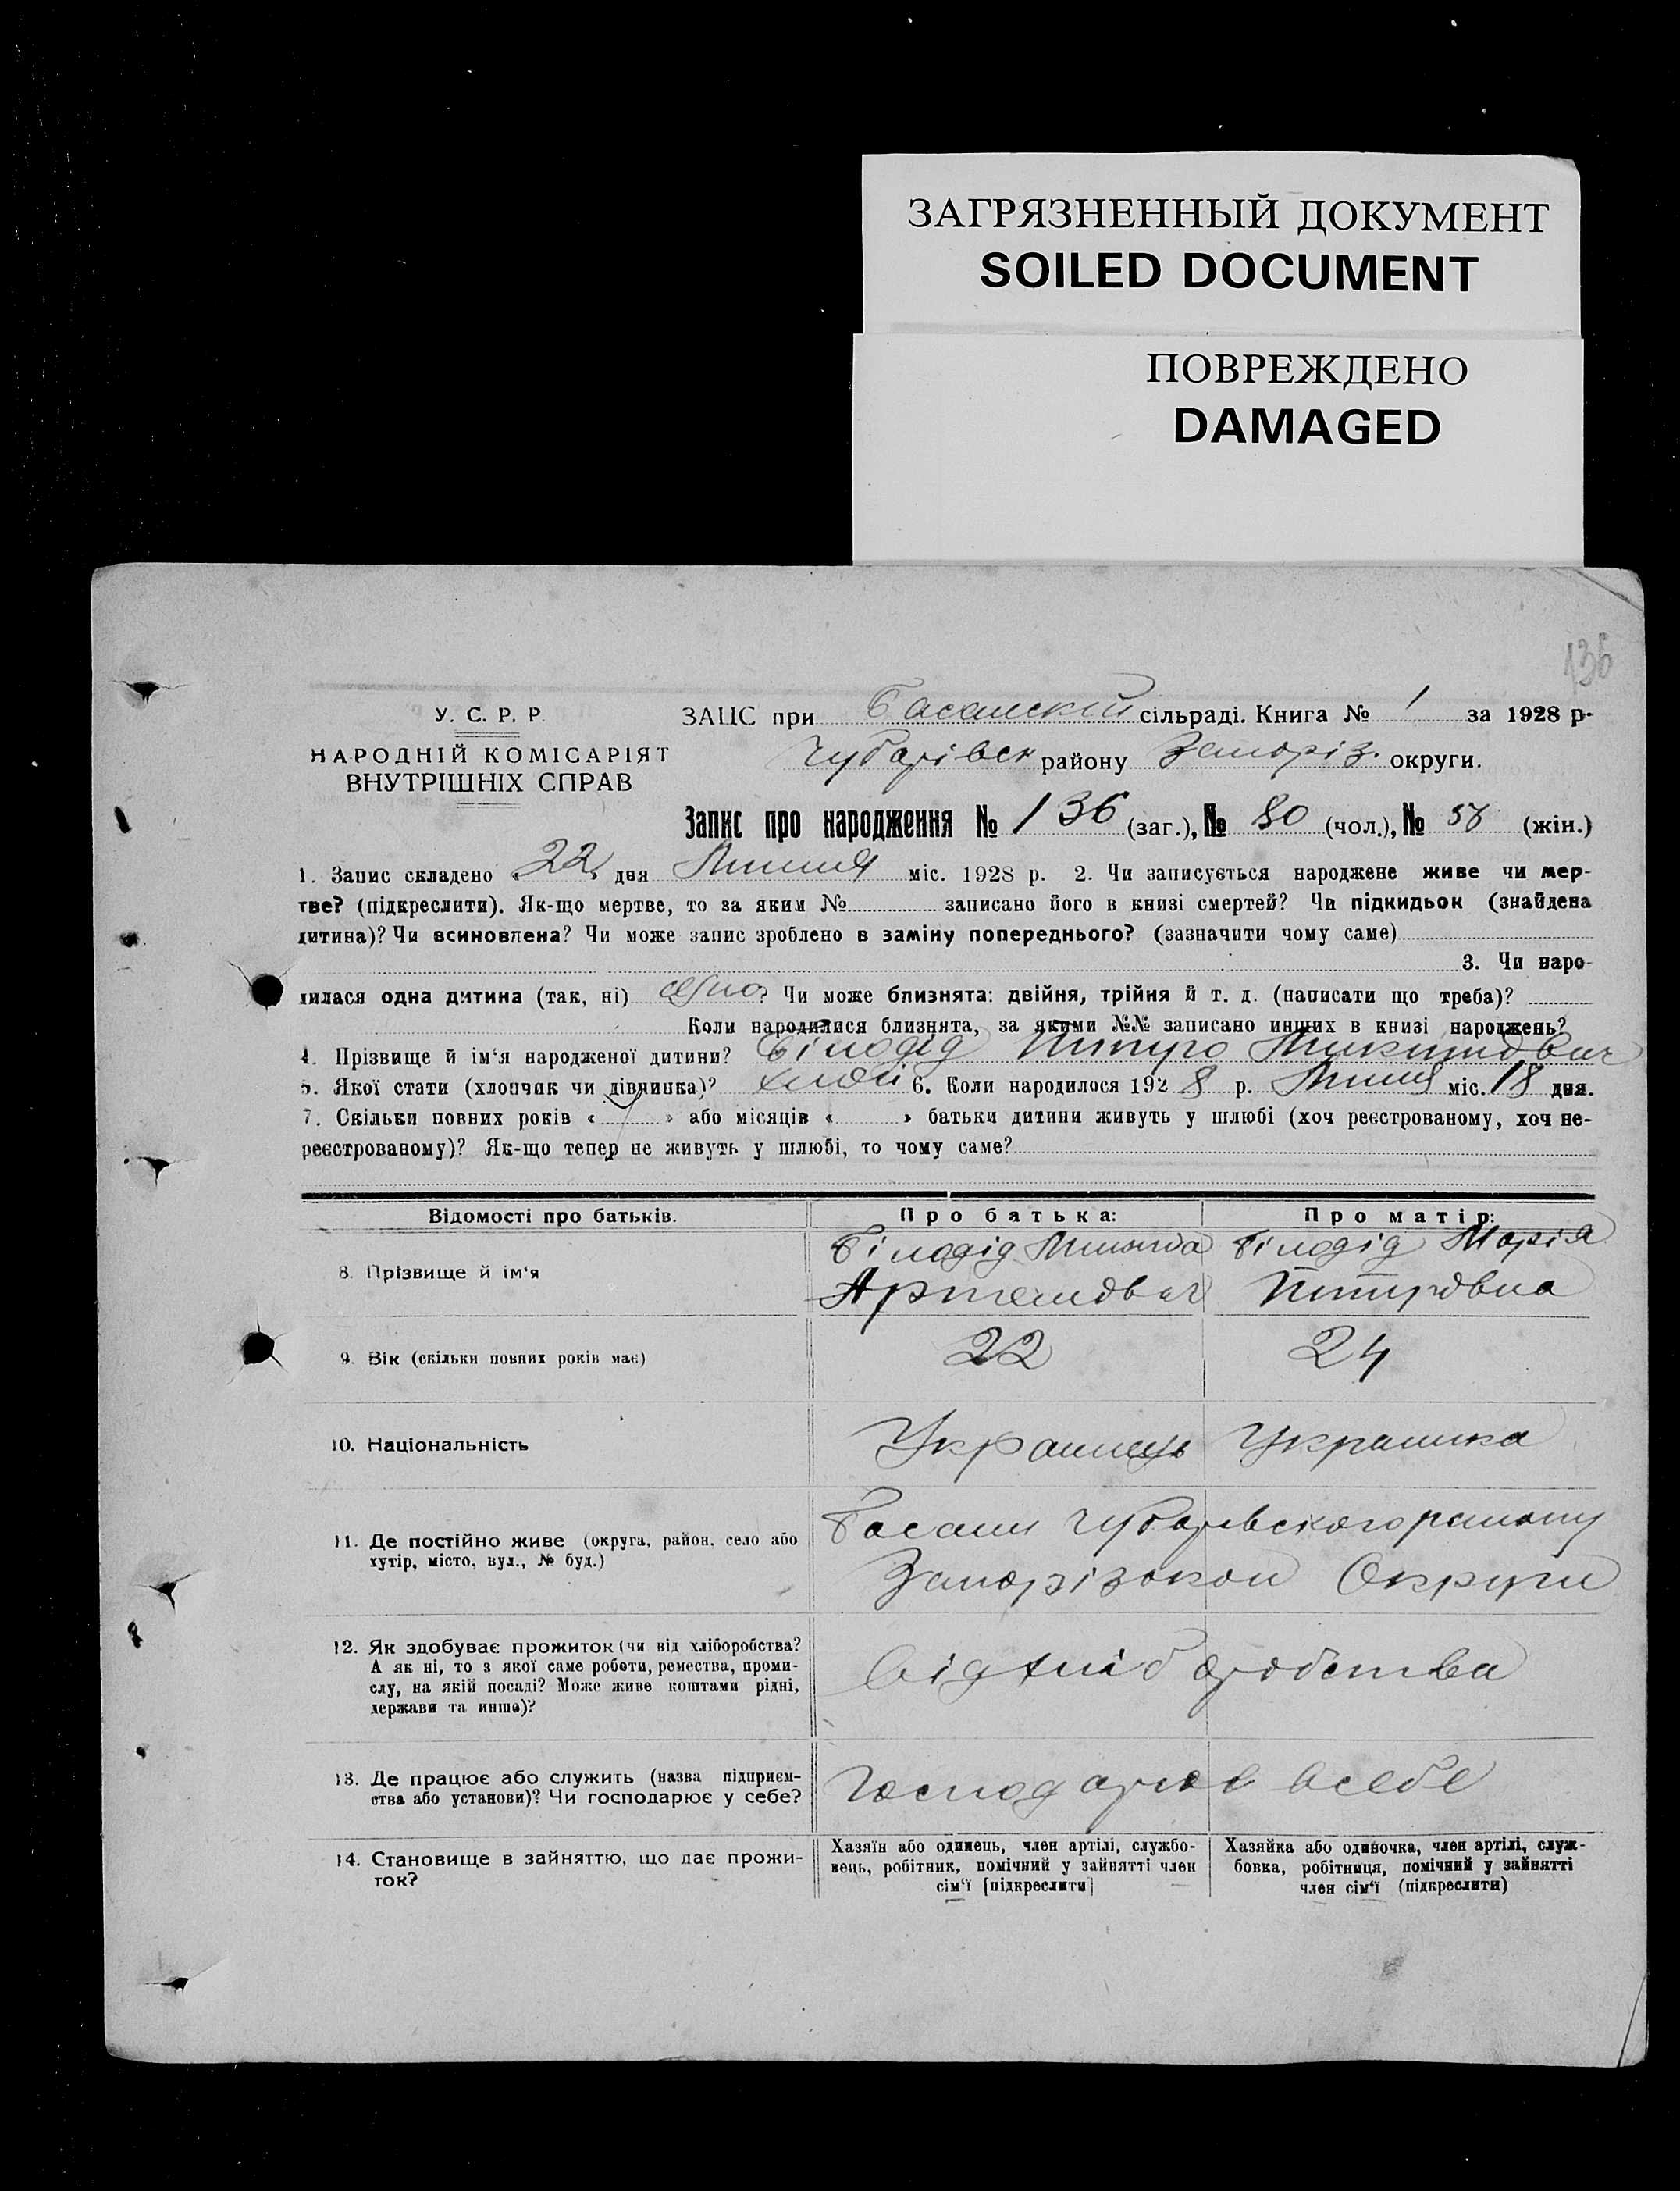 ЗАГРЯЗНЕННЫЙ ДОКУМЕНТ
SOILED DOCUMENT
ПОВРЕЖДЕНО
DAMAGED
136
У. С. Р. Р.
НАРОДНІЙ КОМІСАРІЯТ
ВНУТРІШНІХ СПРАВ
ЗАЦС при Басанській сільраді. Книга № 1 за 1928 р.
Чубарівськ району Запоріз. округи.
Запис про народження № 136 (заг.), № 80 (чол.), № 56 (жін.)
1. Запис складено «22» дня Липня міс. 1928 р. 2. Чи записується народжене живе чи мер-
тве? (підкреслити). Як-що мертве, то за яким № записано його в книзі смертей? Чи підкидьок (знайдена
дитина)? Чи всиновлена? Чи може запис зроблено в заміну попереднього? (зазначити чому саме)
3. Чи наро-
дилася одна дитина (так, ні) одно? Чи може близнята: двійня, трійня й т. д. (написати що треба)?
Коли народилися близнята, за якими №№ записано инших в книзі народжень?
4. Прізвище й ім'я народженої дитини? Білодід
5. Якої стати (хлопчик чи дівчинка)? 6. Коли народилося 1928 р. Липня міс. 18 дня.
7. Скільки повних років « » або місяців « » батьки дитини живуть у шлюбі (хоч реєстрованому, хоч не-
реєстрованому)? Як-що тепер не живуть у шлюбі, то чому саме?
Відомості про батьків. Про батька: Про матір:
8. Прізвище й ім'я Білодід Білодід Марія
Артемович
9. Вік (скільки повних років має) 22 24
10. Національність Украинець Украинка
11. Де постійно живе (округа, район, село або
хутір, місто, вул., № буд.)
Басани Чубарівського району
Запорізокои Округи
12. Як здобуває прожиток (чи від хліборобства?
А як ні, то з якої саме роботи, ремества, проми-
слу, на якій посаді? Може живе коштами рідні,
держави та инше)?
від хліборобства
13. Де працює або служить (назва підприєм-
ства або установи)? Чи господарює у себе?
Господарює в себе
14. Становище в зайняттю, що дає прожи-
ток?
Хазяїн або одинець, член артілі, службо-
вець, робітник, помічний у зайнятті член
сім'ї [підкреслити]
Хазяйка або одиночка, член артілі, служ-
бовка, робітниця, помічний у зайнятті
член сім'ї (підкреслити)